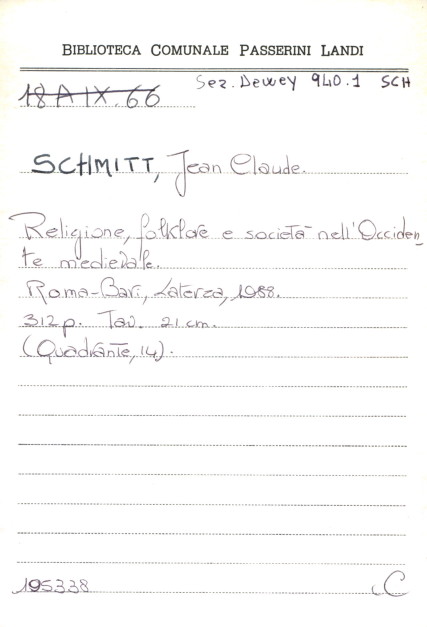 BIBLIOTECA COMUNALE PASSERINI LANDI
Sez. Dewey 940.1 SCH
18 A IX. 66
SCHMITT, Jean Claude.
Religione, folklore e società nell'Occiden
te medievale.
Roma-Bari, Laterza, 1988.
312 p. Tav. 21 cm.
(Quadrante, 14).
195338 C